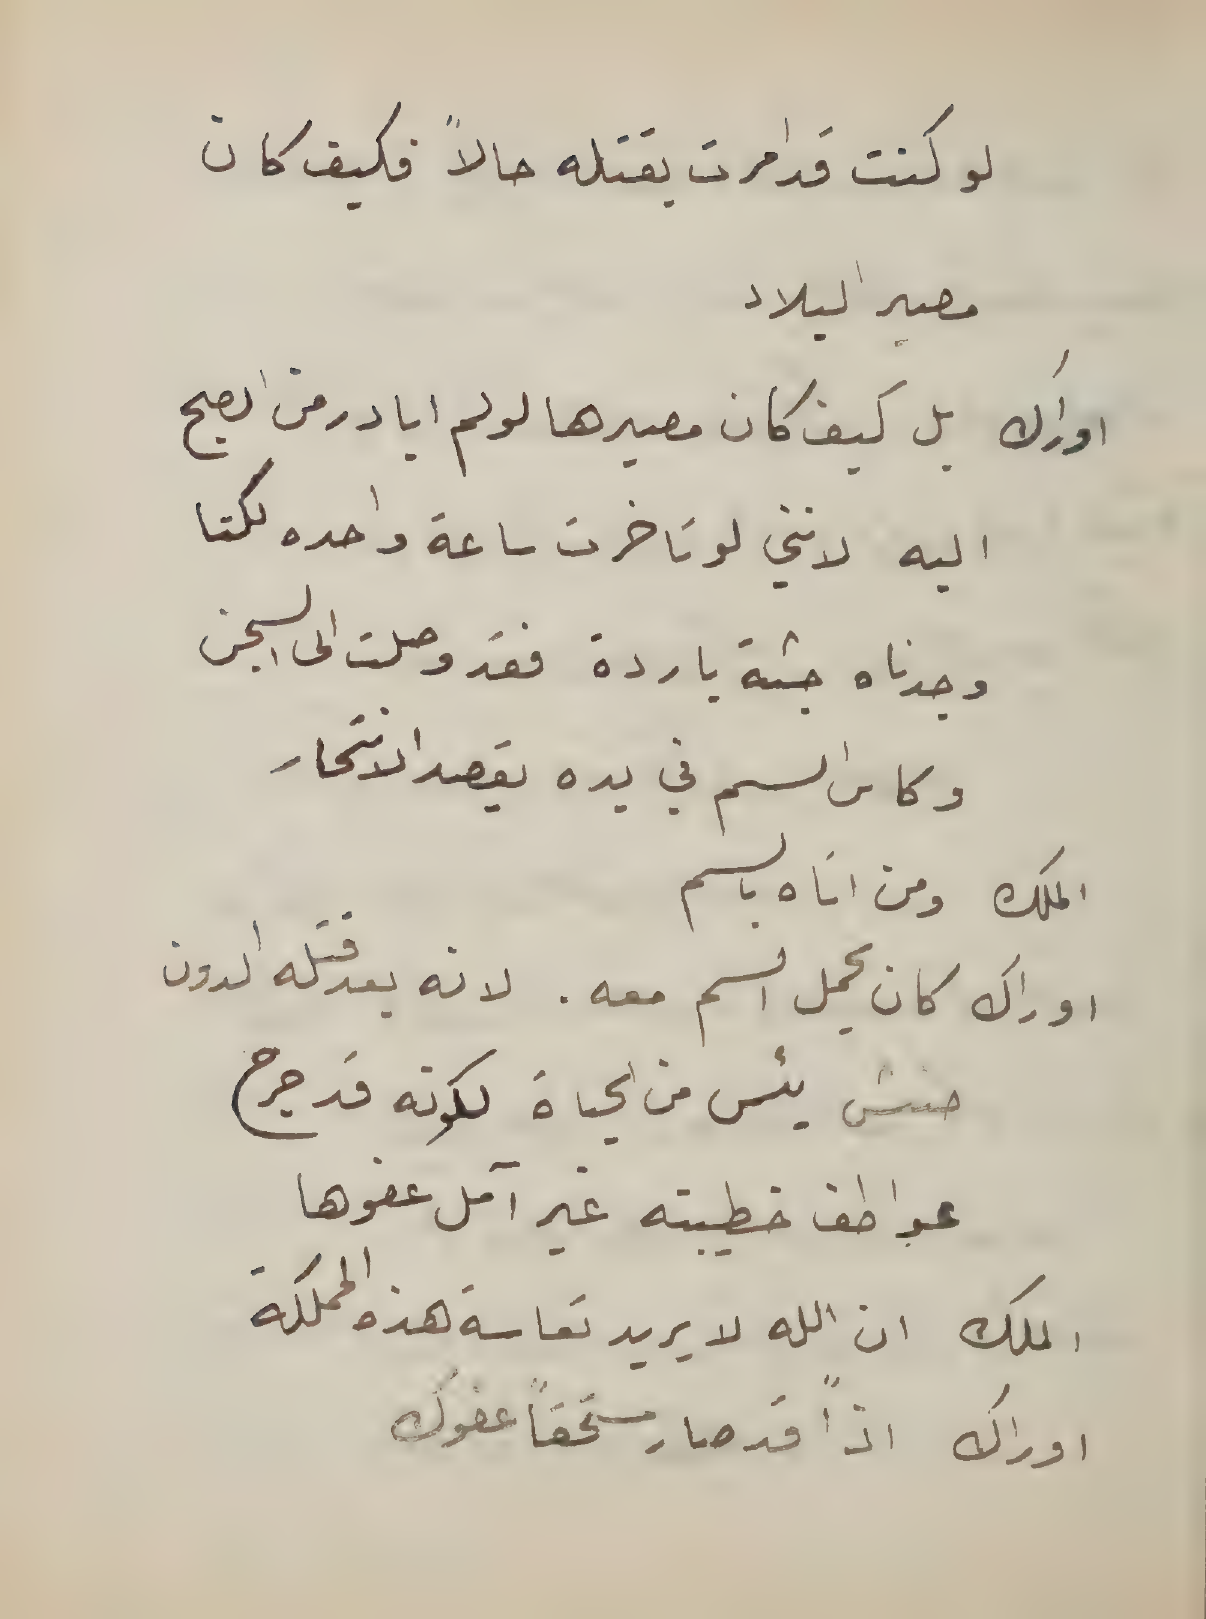 لو كنت قد امرت بقتله حالاً فكيف كان
مصير البلاد
اوراك بل كيف كان مصيرها لو لم ابادر من الصبح
اليه لانني لو تاخرت ساعة واحده لكنا
وجدناه جثة باردة فقد وصلت الى السجن
وكاس السم في يده بقصد الانتحار
الملك ومن اتاه بالسم
اوراك كان يحمل السم معه . لانه بعد قتله الدون
يئس من الحياة لكونه قد جرح
عواطف خطيبته غير آمل عفوها
الملك ان الله لا يريد تعاسة هذه المملكة
اوراك اذاً قد صار مستحقاً عفوك